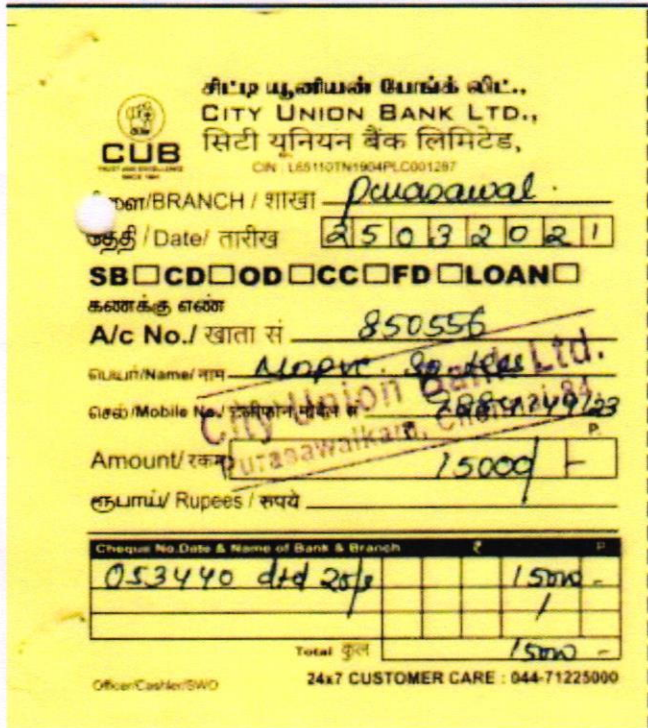 சிட்டி யூனியன் பேங்க் லிட்.,
CITY UNION BANK LTD.,
सिटी यूनियन बैंक लिमिटेड,
CUB
TRUST AND EXCELLENCE
SINCE 1904
CIN : L65110TN1904PLC001287
/BRANCH / शाखा
தேதி / Date/ तारीख 25032021
SB CD OD CC FD LOAN
கணக்கு எண்
A/c No./ खाता सं 850556
பெயர்/Name/ नाम
செல்/Mobile No./
City Union Bank Ltd.
Purasawalkam, Chennai-84
P.
Amount/ रकम 15000/-
ரூபாய்/ Rupees / रुपये
Cheque No.Date & Name of Bank & Branch ₹ P
053440 dtd 15000 -
Total कुल 15000 -
Officer/Cashier/SWO 24x7 CUSTOMER CARE : 044-71225000